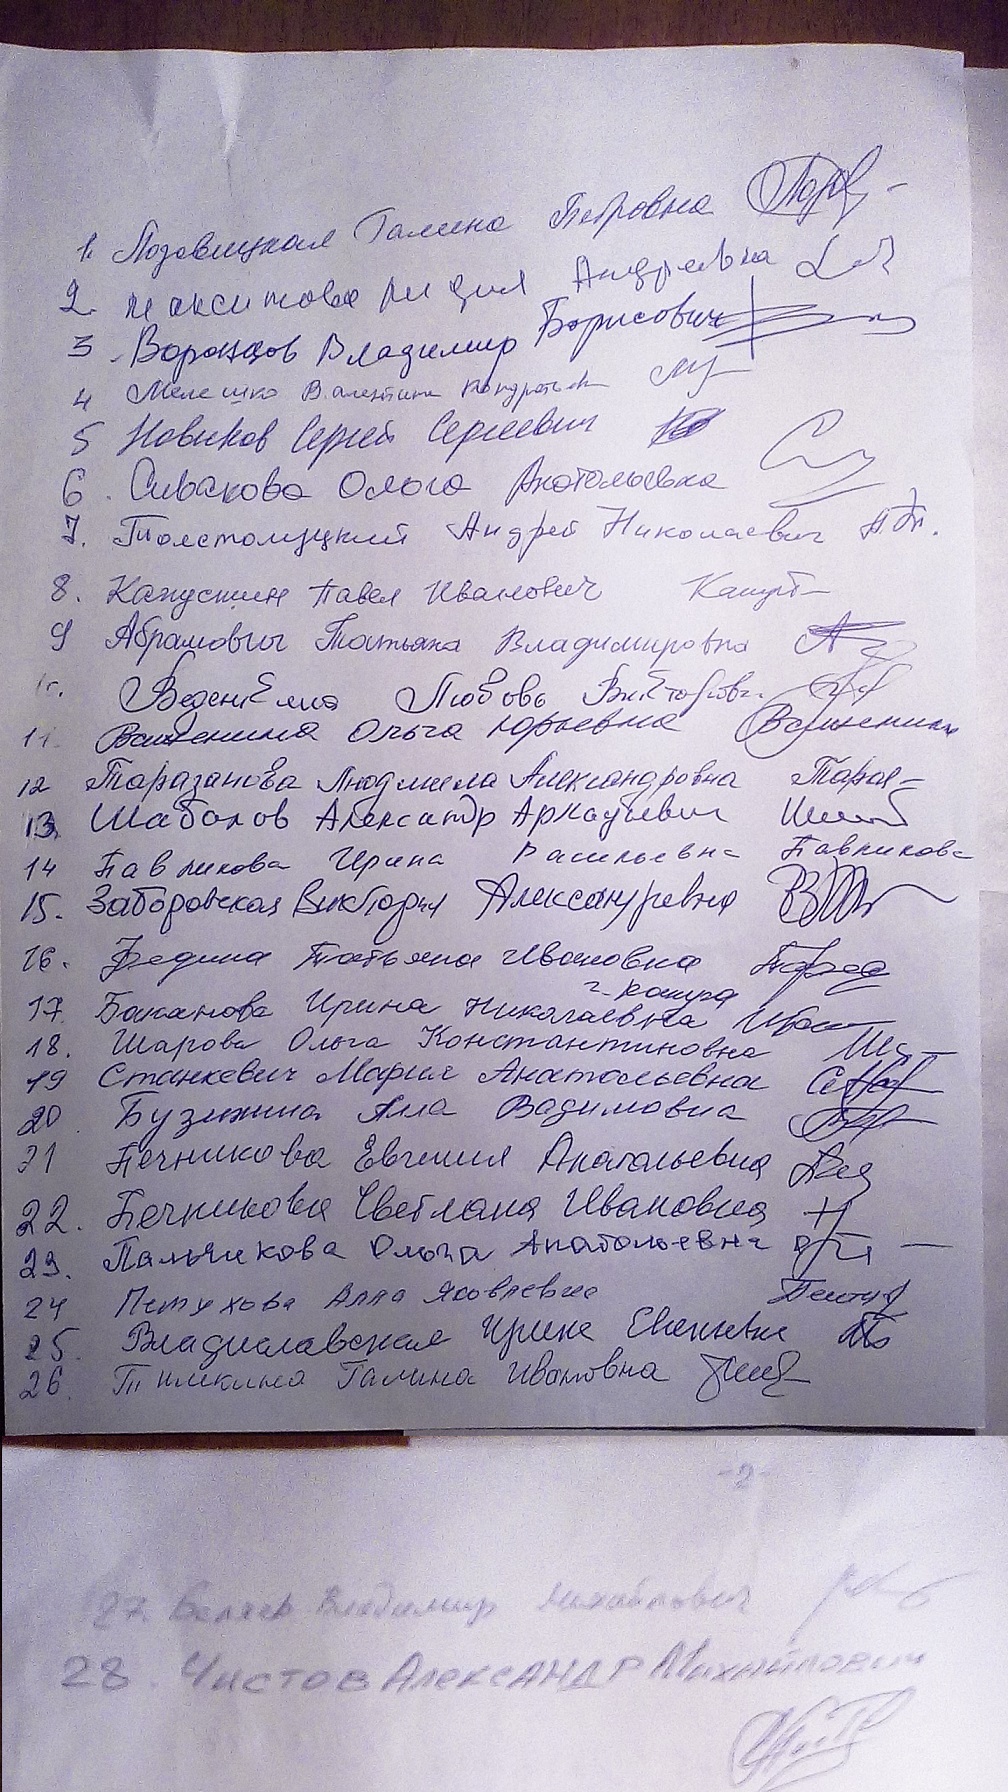 1. Лозовицкая Галина Петровна
2. Максимова Лидия Андреевна
3. Воронцов Владимир Борисович
4 Мелешко Валентина
5 Новиков Сергей Сергеевич
6. Сивакова Ольга Анатольевна
7. Толстолуцкий Андрей Николаевич
8. Капустин Павел Иванович
9 Абрамович Татьяна Владимировна
Любовь Викторовн.
11. Ольга Юрьевна
12 Таразанова Людмила Александровна Тараз
13. Шабалов Александр Аркадьевич
14 Павликова Ирина Васильевна Павликова
15. Заборовская Виктория Александровна
16. Федина Татьяна Ивановна
г. Кашира
17. Баканова Ирина Николаевна
18. Шарова Ольга Константиновна
19 Станкевич Мария Анатольевна
20 Алла Вадимовна
21 Печникова Евгения Анатольевна
22. Печникова Светлана Ивановна
23. Пальчикова Ольга Анатольевна
24 Петухова Алла Яковлевна
25. Владиславская Ирина Евгеньевна
26. Галина Ивановна
-2-
27. Беляев Владимир Михайлович
28. Чистов Александр Михайлович